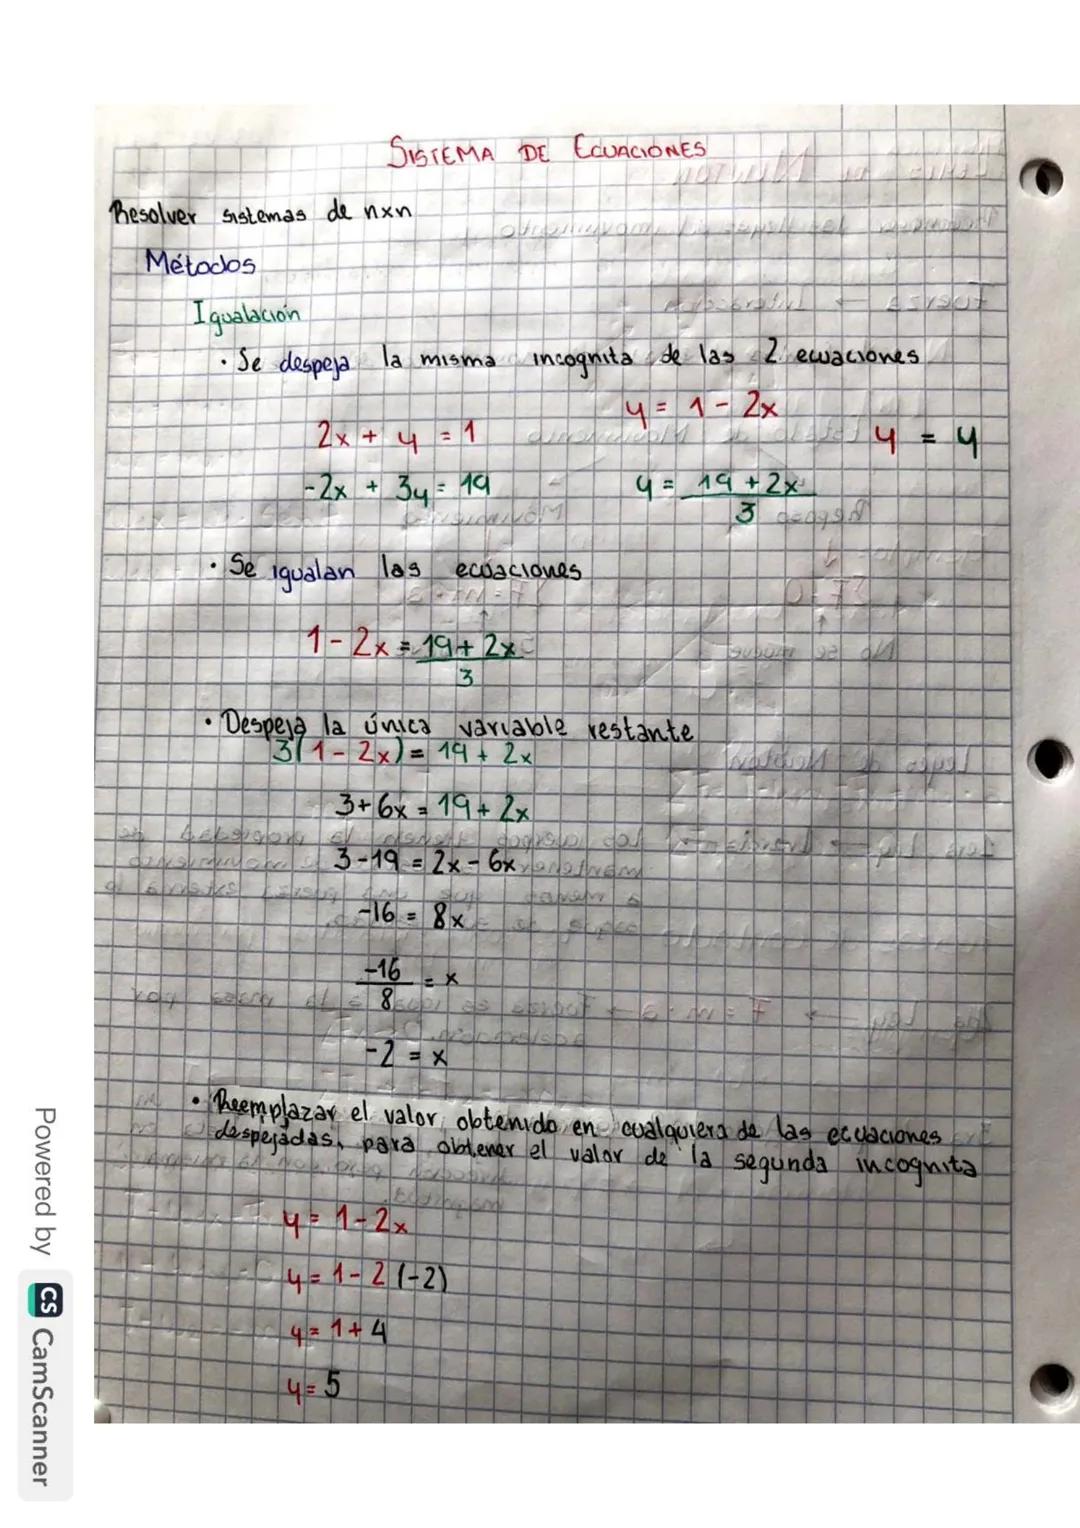 SISTEMA DE ECUACIONES
Resolver sistemas de nxn
Métodos
Igualación
• Se despeja la misma incognita de las 2 ecuaciones
2x + y = 1
y = 1 - 2x
y = y
-2x + 3y = 19
y = 19 + 2x
3
• Se igualan las ecuaciones
1 - 2x = 19 + 2x
3
• Despeja la única variable restante
3(1 - 2x) = 19 + 2x
3 + 6x = 19 + 2x
3 - 19 = 2x - 6x
-16 = 8x
-16 = x
8
-2 = x
• Reemplazar el valor obtenido en cualquiera de las ecuaciones
despejadas, para obtener el valor de la segunda incognita
y = 1 - 2x
y = 1 - 2 (-2)
y = 1 + 4
y = 5
Powered by CS CamScanner